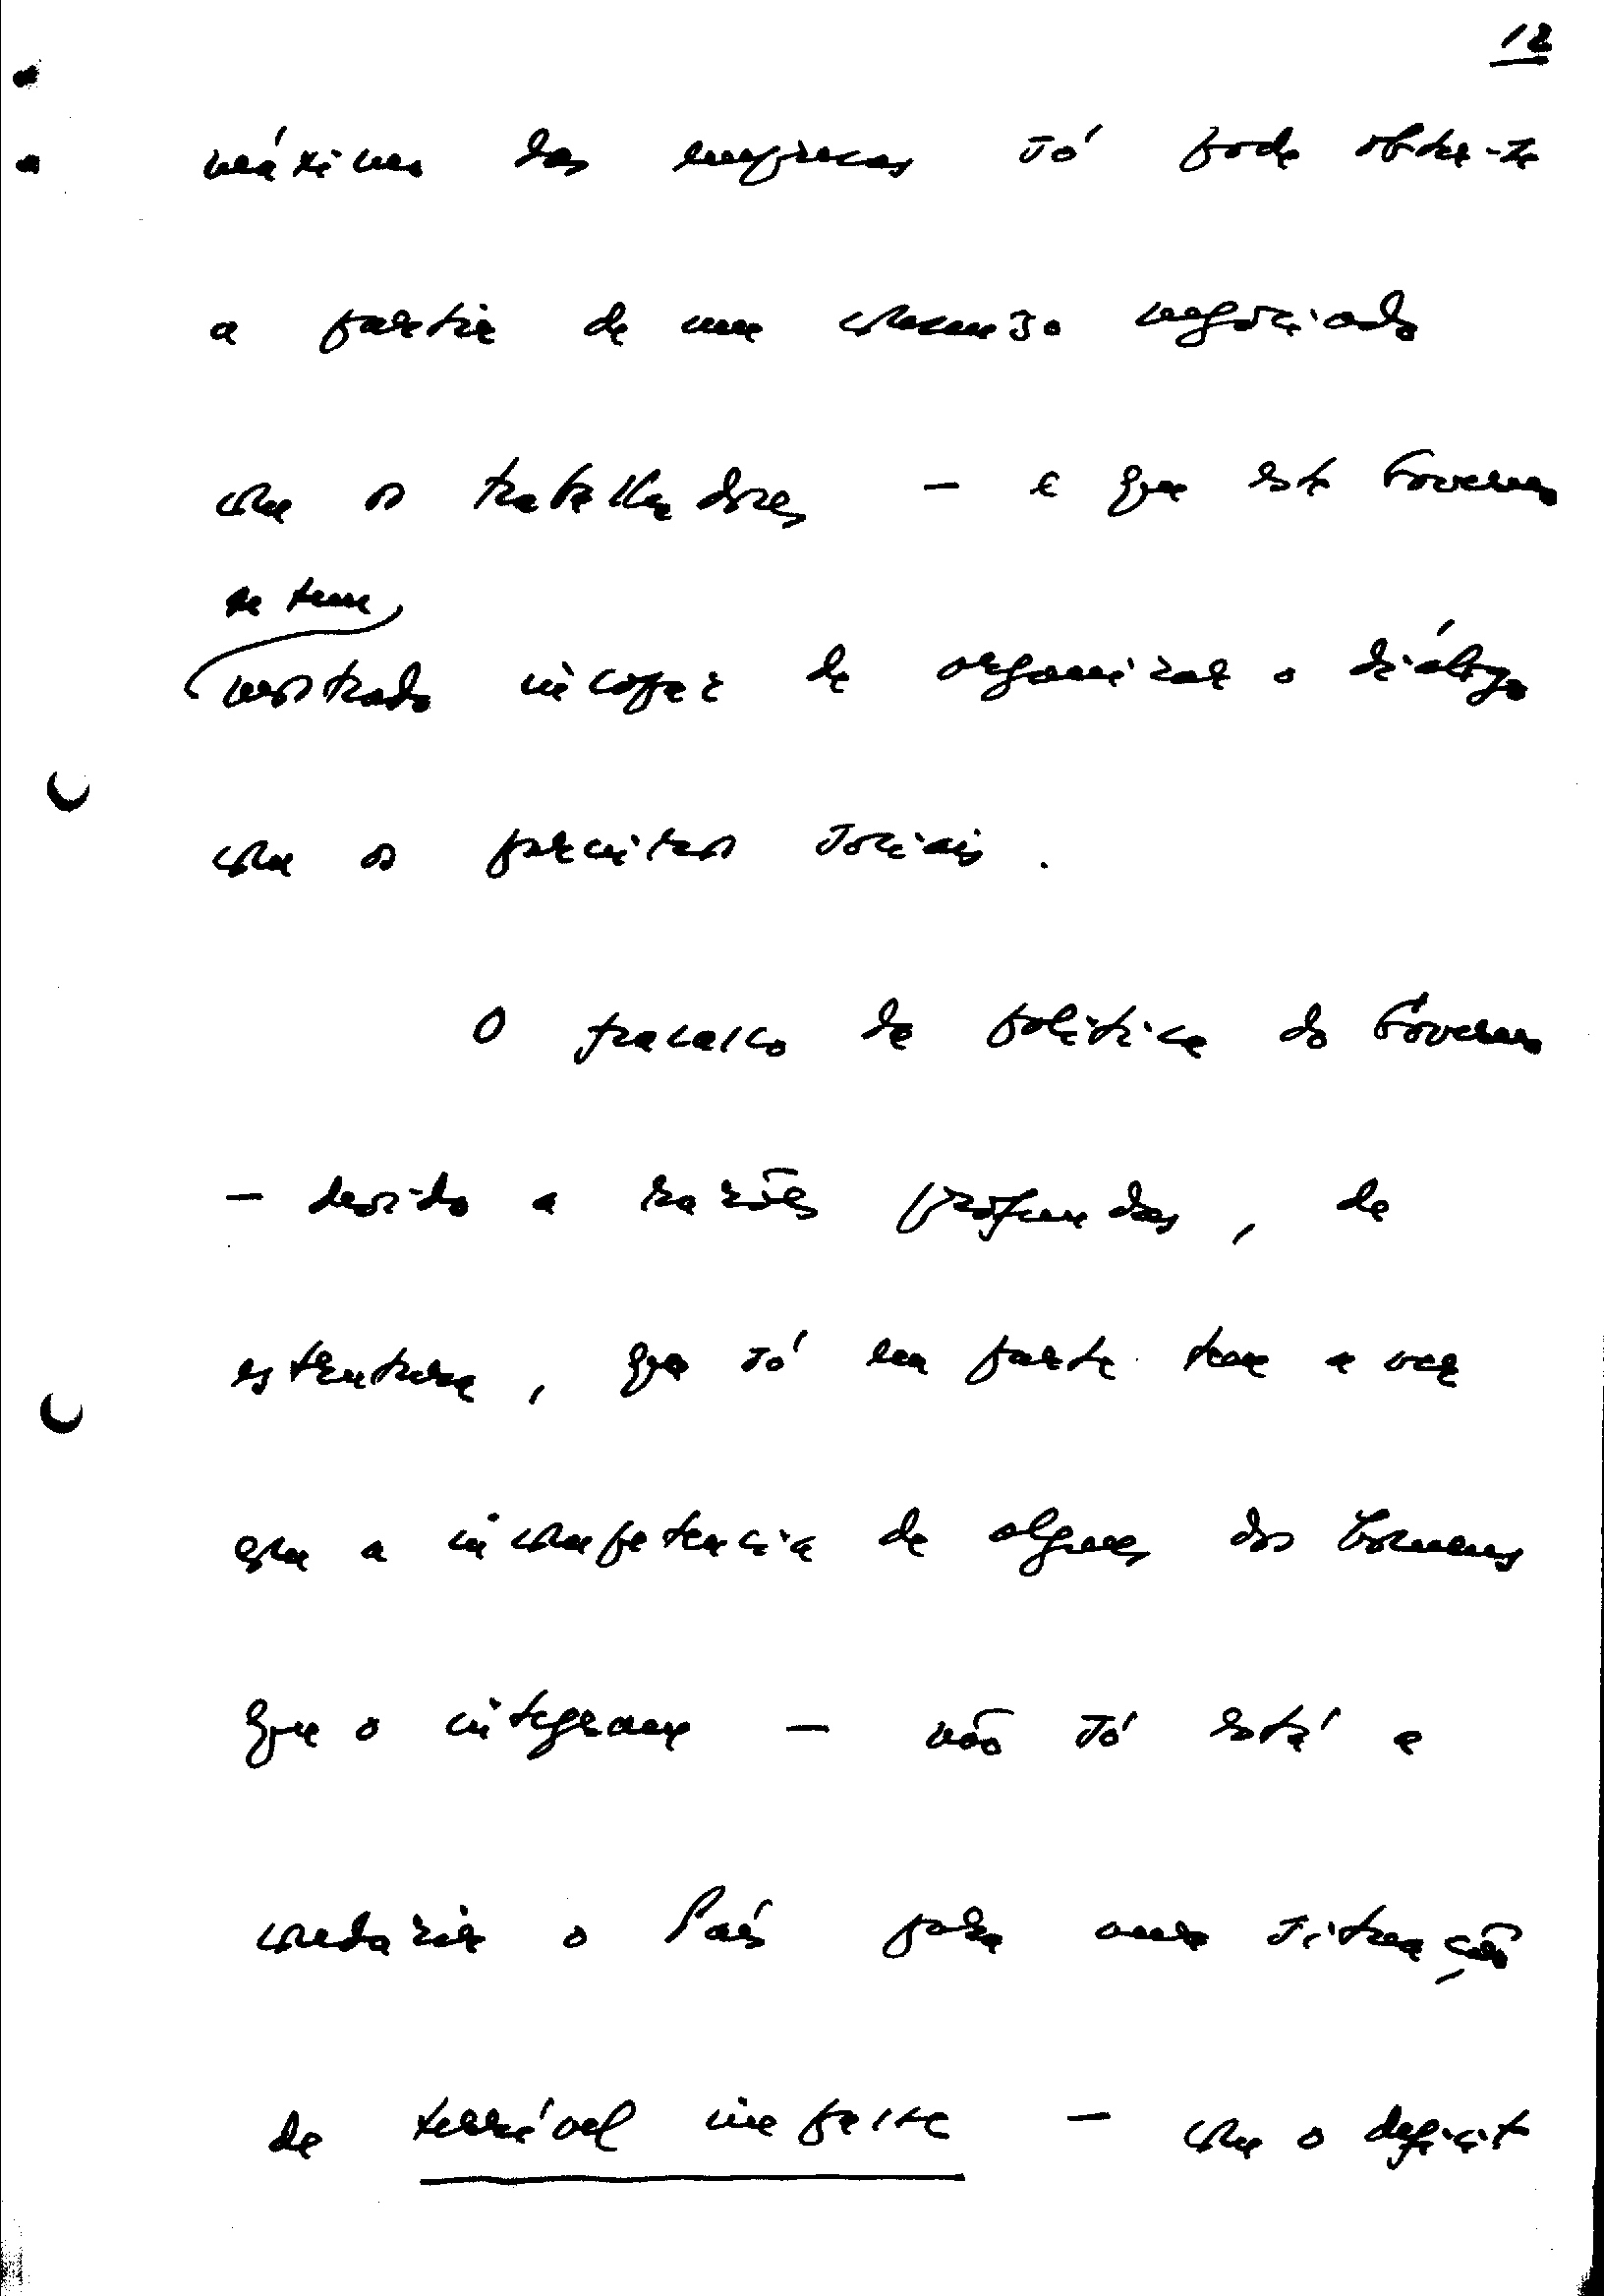 12
máximo das empresas só pode obter-se
a partir de um consenso negociado
com os trabalhadores — e que este Governo
se tem
mostrado incapaz de organizar o diálogo
com os parceiros sociais.
O fracasso da política do Governo
— devido a razões profundas, de
estrutura, que só em parte tem a ver
com a incompetencia de alguns dos homens
que o integram — não só está a
conduzir o País para uma situação
de terrível impasse — com o deficit